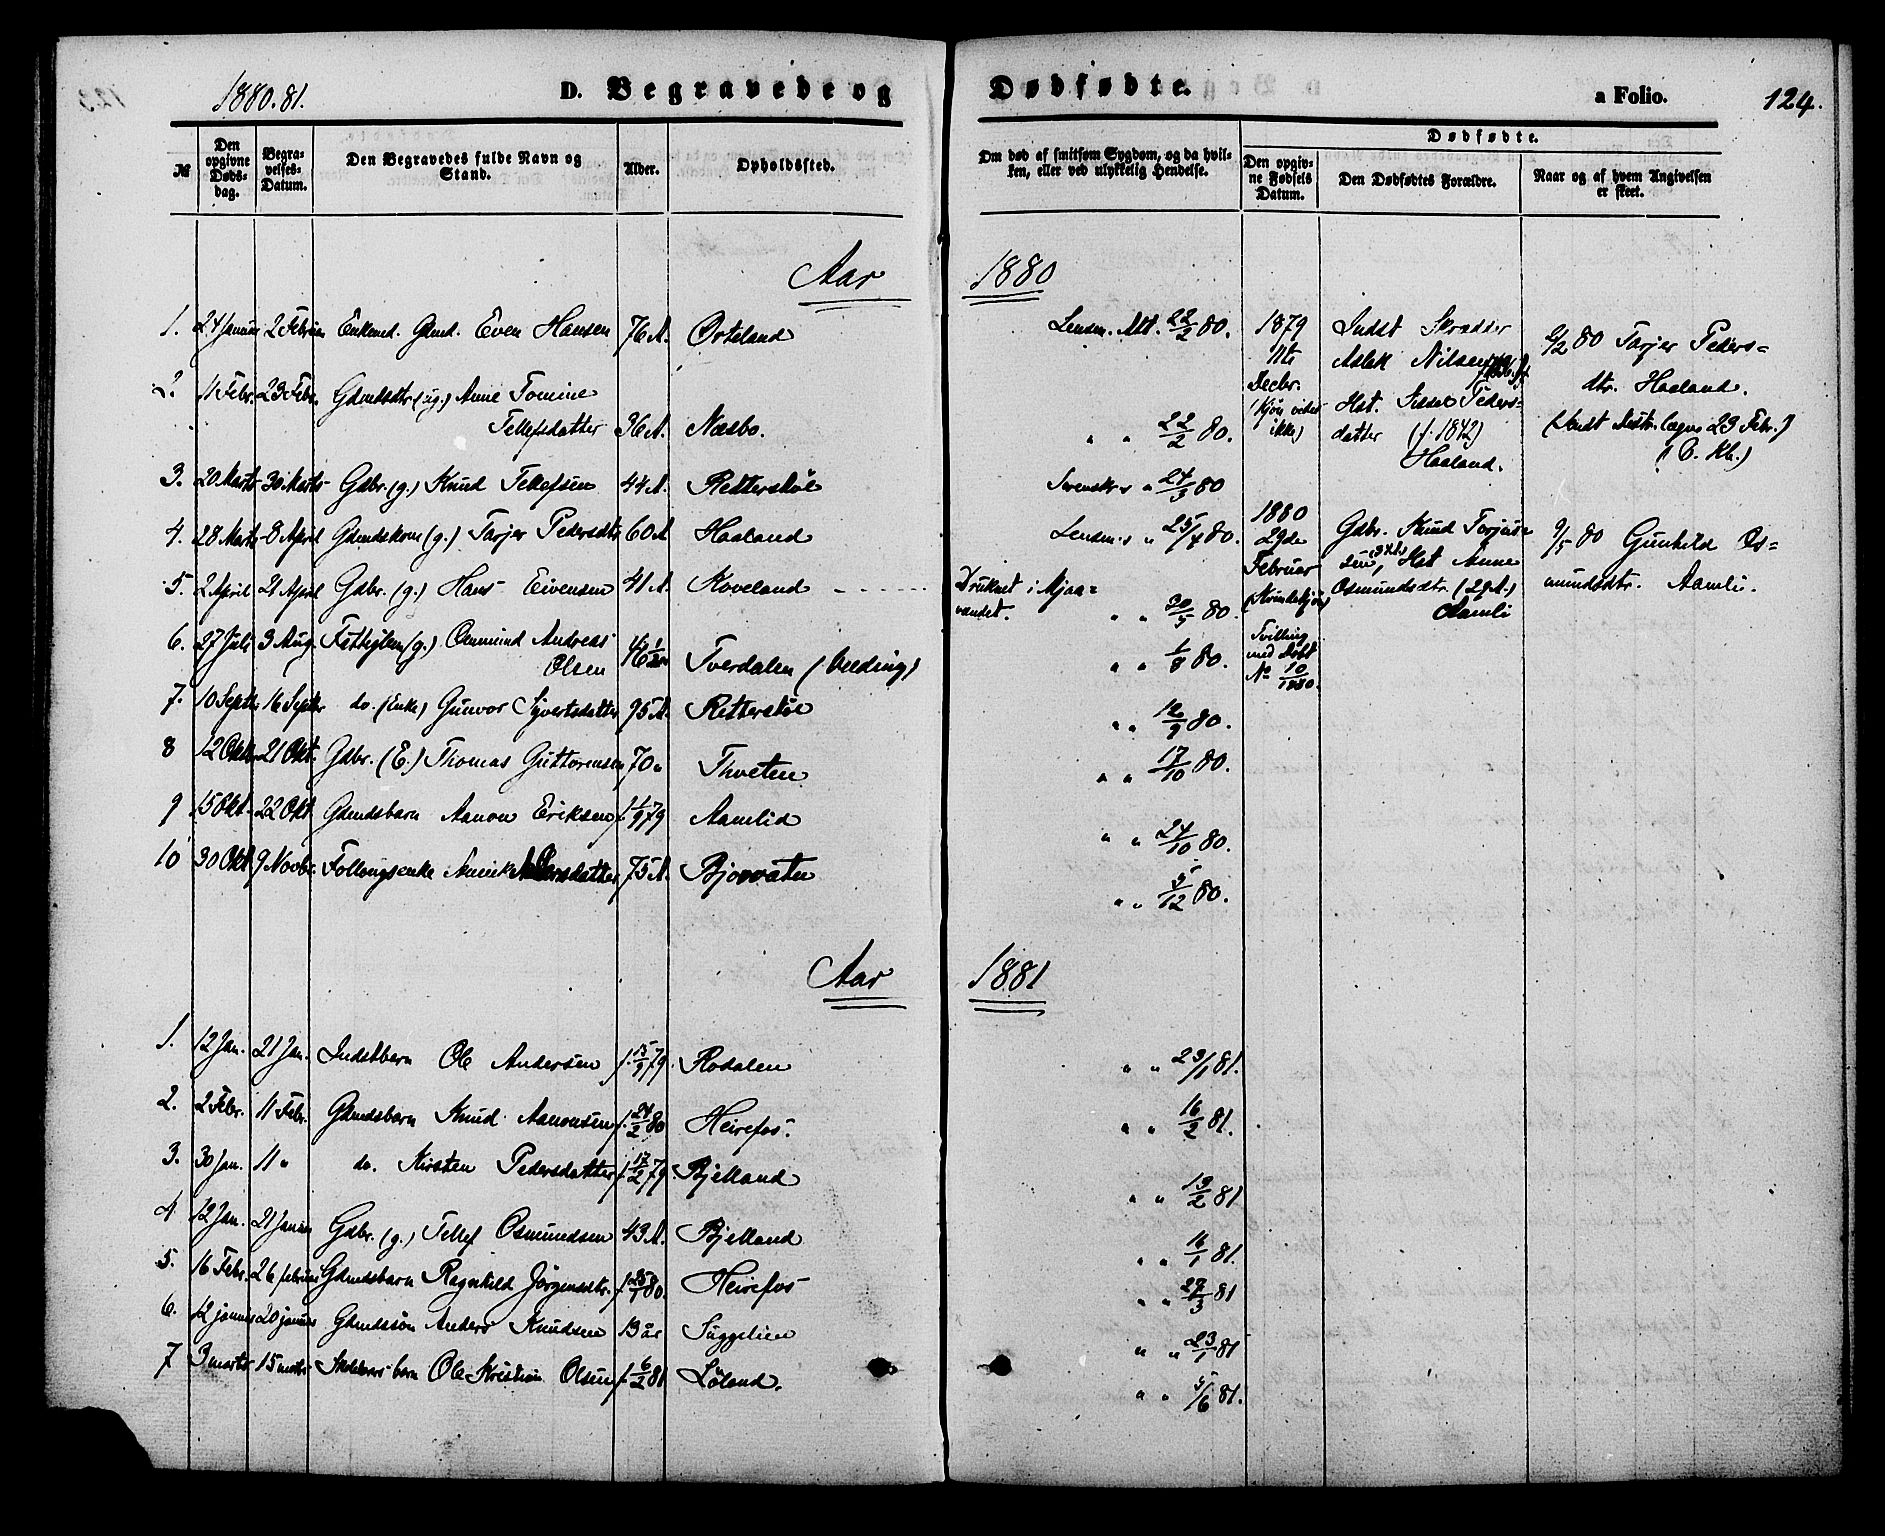 1880.81.
D. Begravede og Dødfødte.
a Folio. 124.
№
Den opgivne Døds-dag.
Begra-velses-Datum.
Den Begravedes fulde Navn og Stand.
Alder.
Opholdssted.
Om død af smitsom Sygdom, og da hvil-ken, eller ved ulykkelig Hendelse.
Dødfødte.
Den opgiv-ne Fødsels Datum.
Den Dødfødtes Forældre.
Naar og af hvem Angivelsen er skeet.
Aar 1880
1. 24 Januar 2 Februar Enkemd. Gmd. Even Hansen 76 A. Ørteland Lensm. Att. 22/2 80.
2. 11 Febr. 23 Febr. Gdmdsdtr (ug.) Anne Tomine
Tellefsdatter 36 A. Næsbo. " " 22/2 80.
3. 20 Marts 30 Marts Gdbr. (g.) Knud Tellefsen 44 A. Retterstøl " 24/3 80
4. 28 Marts 8 April Gdmdskone (g.) Tarjer Pedersdtr 60 A Haaland Lensm.s " 25/4 80.
5. 2 April 21 April Gdbr. (g.) Hans Eivensen 41 A. Roveland Druknet i Mjaa=
vandet. " " 30/5 80.
6. 27 Juli 3 Aug. Fattiglem (g.) Osmund Andreas
Olsen 46 1/2 Tverdalen " " 1/8 80.
7. 10 Septbr 16 Septbr do. (Enke) Gunvor Syvertsdatter 95 A. Retterstøl " " 12/9 80.
8 12 Okt. 21 Okt. Gdbr. (E.) Thomas Guttormsen 70 " Thveten " " 17/10 80.
9 15 Okt. 22 Okt Gdmdsbarn Aanon Eriksen f. 1/9 79 Aamlid " " 24/10 80.
10 30 Okt 9 Novbr. 75 A. Bjorvatn " " 5/12 80.
1879
11te
Decbr.
(Kjøn vides
ikke)
Indst Skrædder
Aslak Nilsen
Hst. Sissel Peders=
datter (f. 1842)
Haaland.
6/2 80 Tarjer Peders=
dtr. Haaland.
(Sendt Distr.læge 23 Febr.)
1880
29de
Februar
(Kvindekjøn)
Tvilling
med Døbt
No 10/1880.
Gdbr. Knud Torjus=
sen, Hst Anne
Osmundsdtr. (29 A.)
Aamli
9/5 80 Gunhild Os=
mundsdtr. Aamli.
Aar 1881
1. 12 Jan. 21 Jan. Indstbarn Ole Andersen f. 15/9 79. Rodalen " " 23/1 81.
2. 2 Febr. 11 Febr. Gdmdsbarn Knud Aanonsen f. 24/2 80 Heirefos. " " 16/2 81.
3. 30 Jan. 11 " do. Kirsten Pedersdatter f. 17/2 79. Bjelland " " 13/2 81
4 12 Jan. 21 Januar Gdbr. (g.) Tellef Osmundsen 43 A. Bjelland " " 16/1 81.
5. 16 Febr. 26 februar Gdmdsbarn Ragnhild Jørgensdtr. f. 25/1 80. Heirefos " " 27/3 81
6. 12 januar 20 januar Gdmdssøn Anders Knudsen 13 år Suggelien " " 23/1 81
7 3 marts 15 marts barn Ole Kristian Olsen f. 6/2 81 Løland. " " 5/6 81.